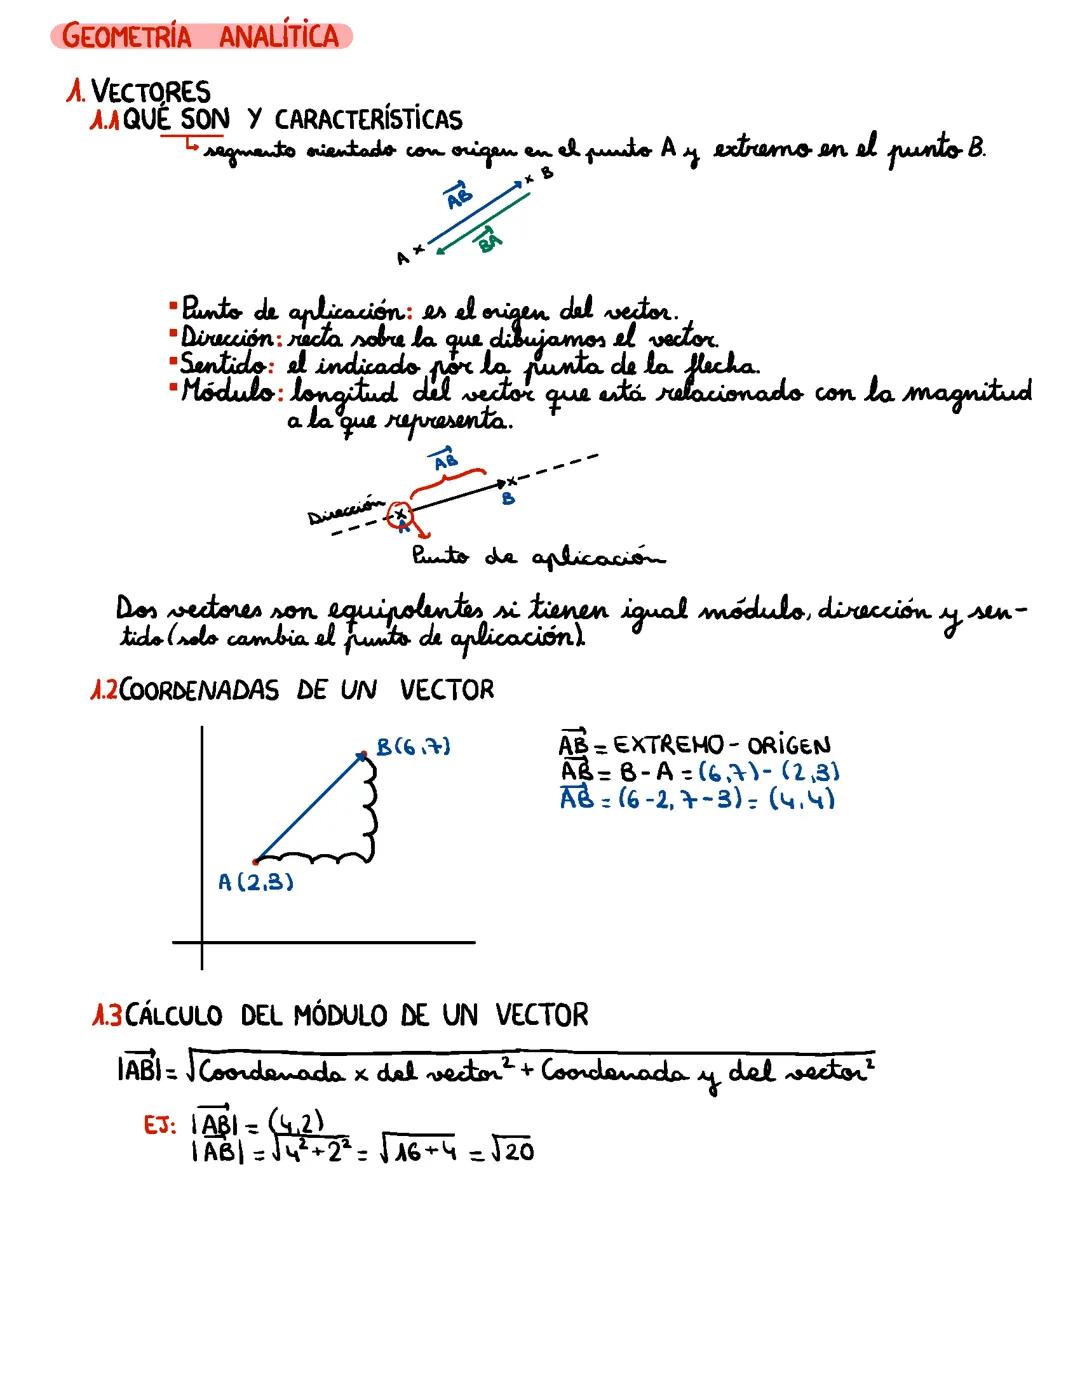 GEOMETRÍA ANALÍTICA
1. VECTORES
1.1 QUÉ SON Y CARACTERÍSTICAS
segmento orientado con origen en el punto A y extremo en el punto B.
B
AB
BA
A
▪ Punto de aplicación: es el origen del vector.
▪ Dirección: recta sobre la que dibujamos el vector.
▪ Sentido: el indicado por la punta de la flecha.
▪ Módulo: longitud del vector que está relacionado con la magnitud
a la que representa.
AB
B
Dirección
A
Punto de aplicación
Dos vectores son equipolentes si tienen igual módulo, dirección y sen-
tido (solo cambia el punto de aplicación).
1.2 COORDENADAS DE UN VECTOR
B(6,7)
A(2,3)
AB = EXTREMO - ORIGEN
AB = B - A = (6,7) - (2,3)
AB = (6-2, 7-3) = (4,4)
1.3 CÁLCULO DEL MÓDULO DE UN VECTOR
|AB| = √Coordenada x del vector² + Coordenada y del vector²
EJ: |AB| = (4,2)
|AB| = √4²+2² = √16+4 = √20